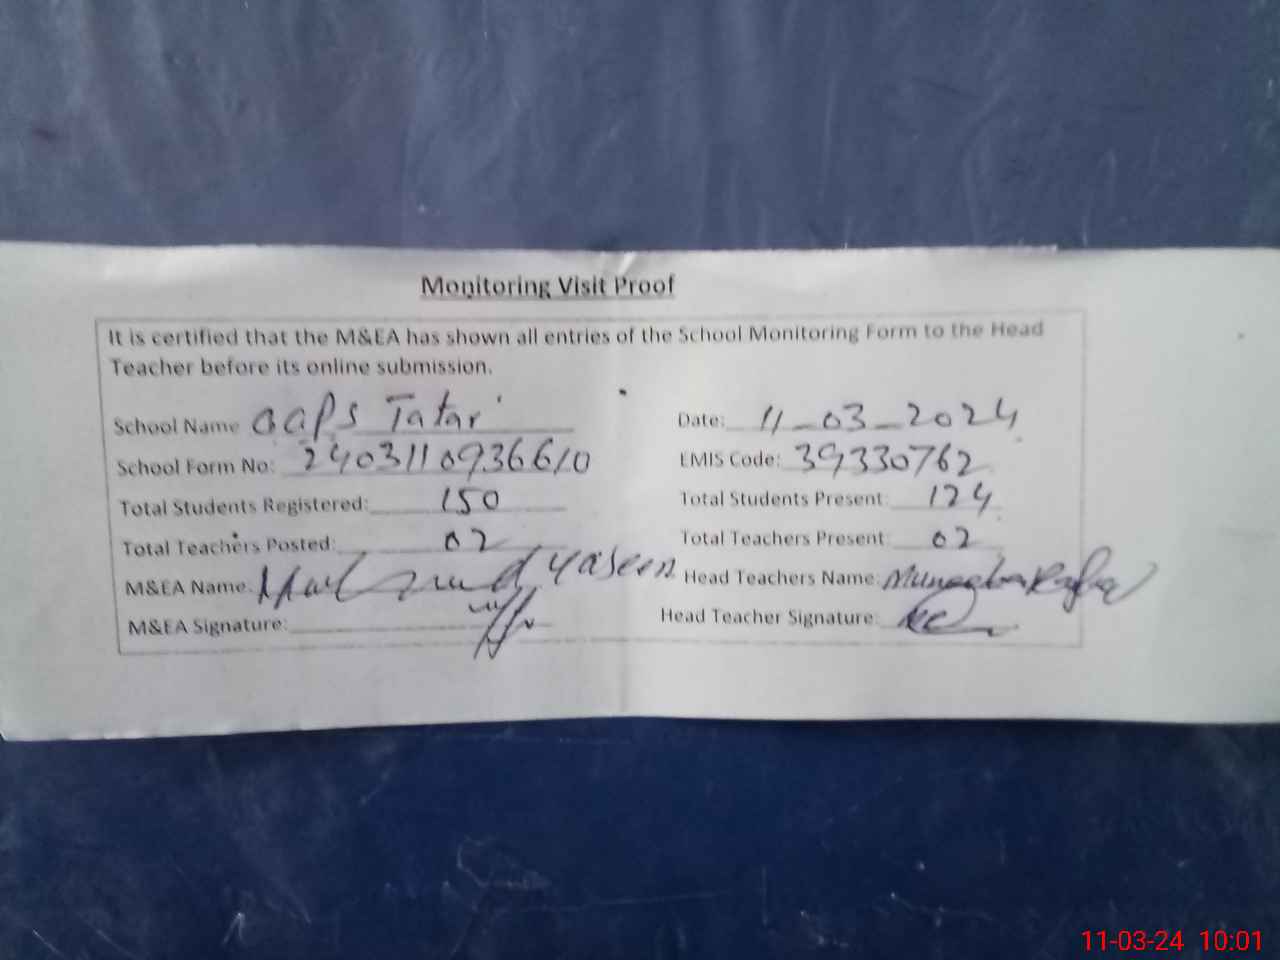 Monitoring Visit Proof
It is certified that the M&EA has shown all entries of the School Monitoring Form to the Head
Teacher before its online submission.
School Name GGPS Tatar Date: 11-03-2024
School Form No: 2403110936610 EMIS Code: 39330762
Total Students Registered: 150 Total Students Present: 124
Total Teachers Posted: 02 Total Teachers Present: 02
M&EA Name: Yaseen Head Teachers Name:
M&EA Signature: Head Teacher Signature:
11-03-24 10:01